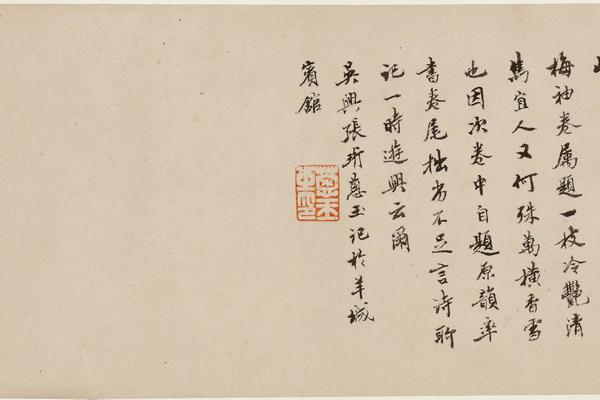 梅袖卷属題一枝冷艷清
雋宜人又何殊萬橫香雪
也因次卷中自題原韻率
書卷尾拙劣不足言詩聊
記一時遊興云爾
吳興張珩蔥玉記於羊城
賓館